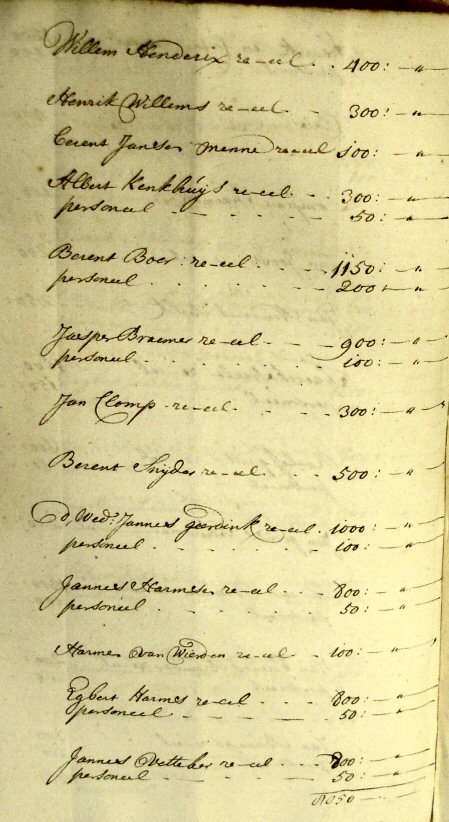 Willem Henderix re-eel . . 400: — „
Henrik Willems re-eel — 300: — „
Berent Jansen Menne re-eel 500: — „
Albert Kenkhuijs re-eel . . . 300: — „
personeel — — — 50: — „
Berent Boer re-eel . . . . 1150: — „
personeel . . . . . . 200: — „
Jaesper Braemer re-eel — . — 900: — „
personeel . . . . . . 100: — „
Jan Clomp re-eel . . . 300: — „
Berent Snijder re-eel . . . 500: — „
D, Wed: Jannes Geerdink re-eel . 1000: — „
personeel . . . . . 100: — „
Jannes Harmsen re-eel . . . 800: — „
personeel . . . . . 50: — „
Harmen van Wierden re-eel — 100: — „
Egbert Harmes re-eel . . . 800: — „
personeel — — — — 50: — „
Jannes re-eel . . . 800: — „
personeel — — — — 50: — „